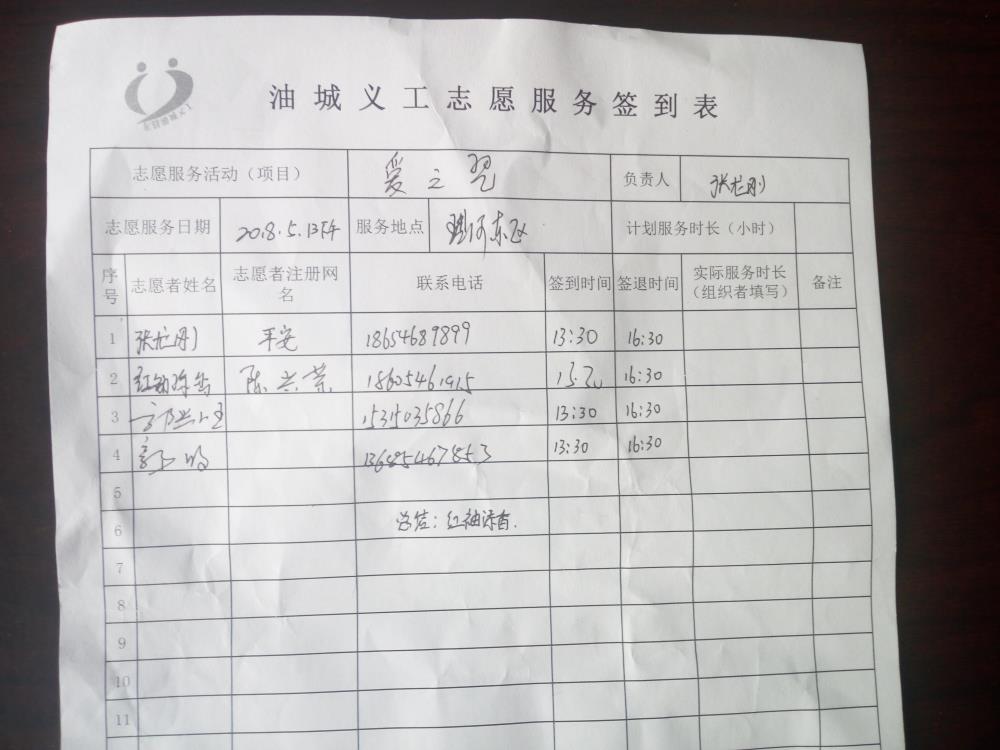 油城义工志愿服务签到表
志愿服务活动（项目） 爱之翼 负责人
志愿服务日期 2018.5.13下午 服务地点 东区 计划服务时长（小时）
序号 志愿者姓名 志愿者注册网名 联系电话 签到时间 签退时间 实际服务时长（组织者填写） 备注
1 平安 18654689899 13:30 16:30
2 陈兰荣 18605461915 16:30
3 15315035866 13:30 16:30
4 13685467853 13:30 16:30
5
6 总结：红袖添香.
7
8
9
10
11